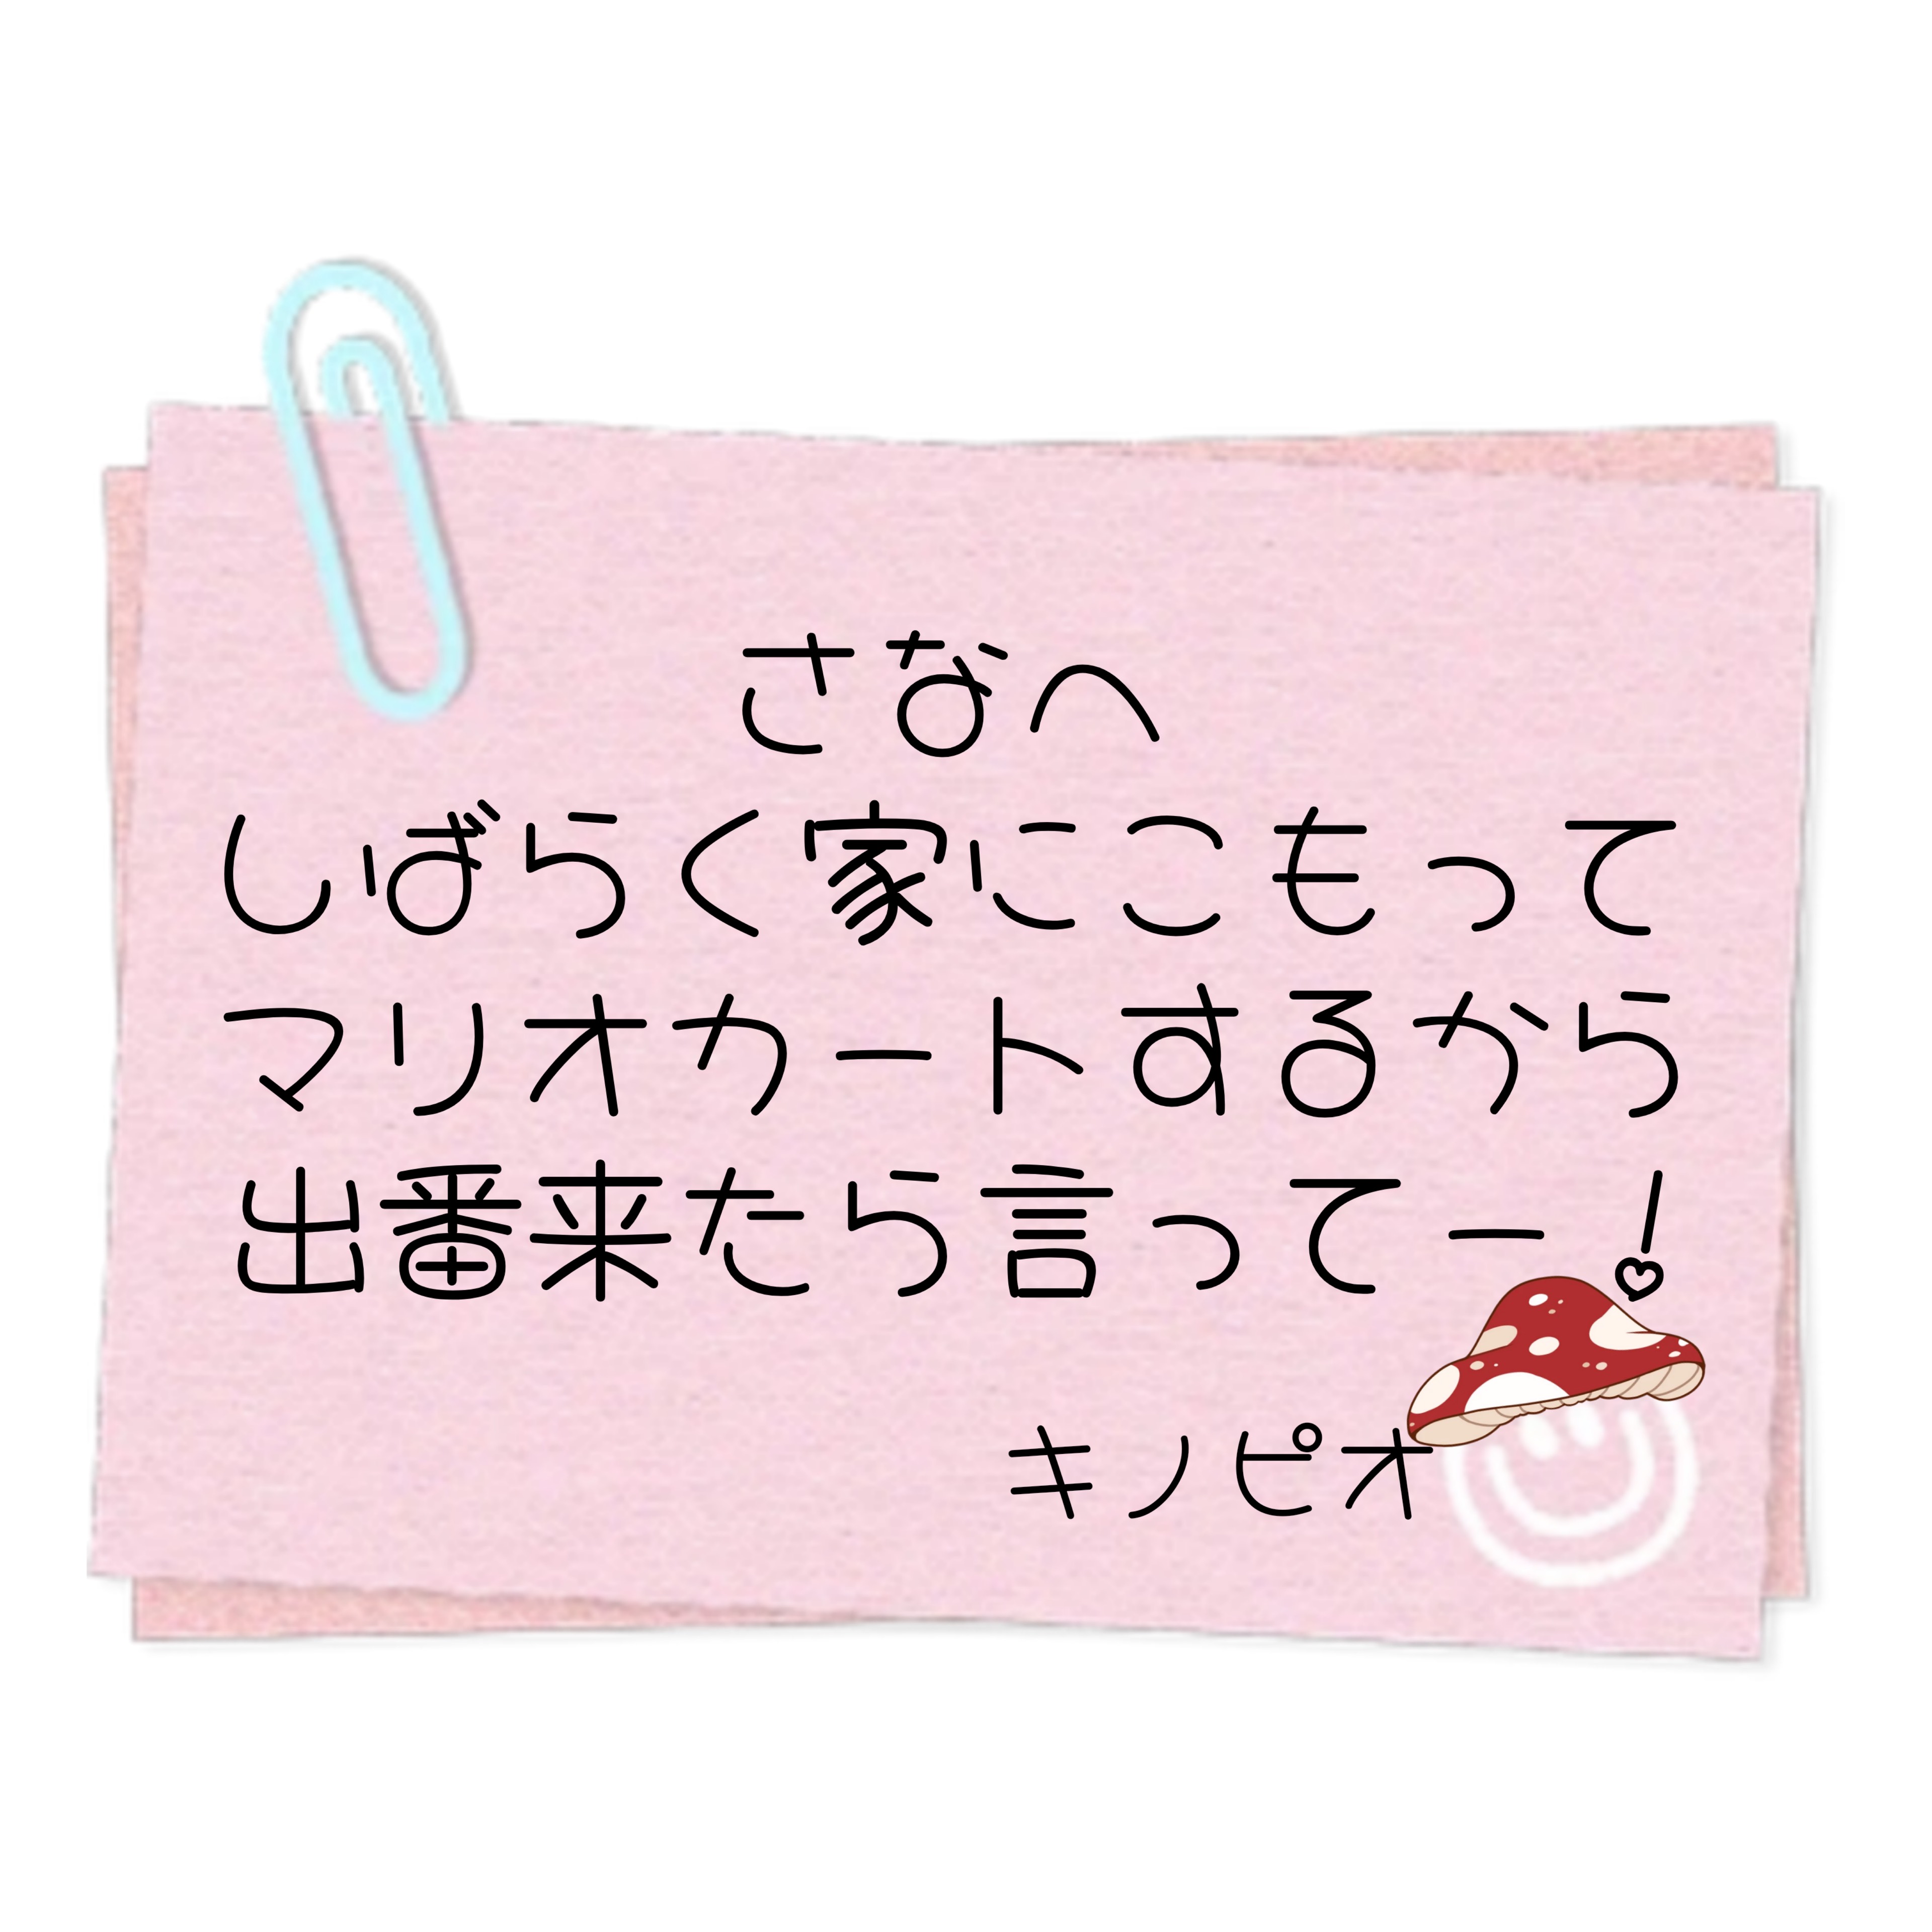 さなへ
しばらく家にこもって
マリオカートするから
出番来たら言ってー!
キノピオ